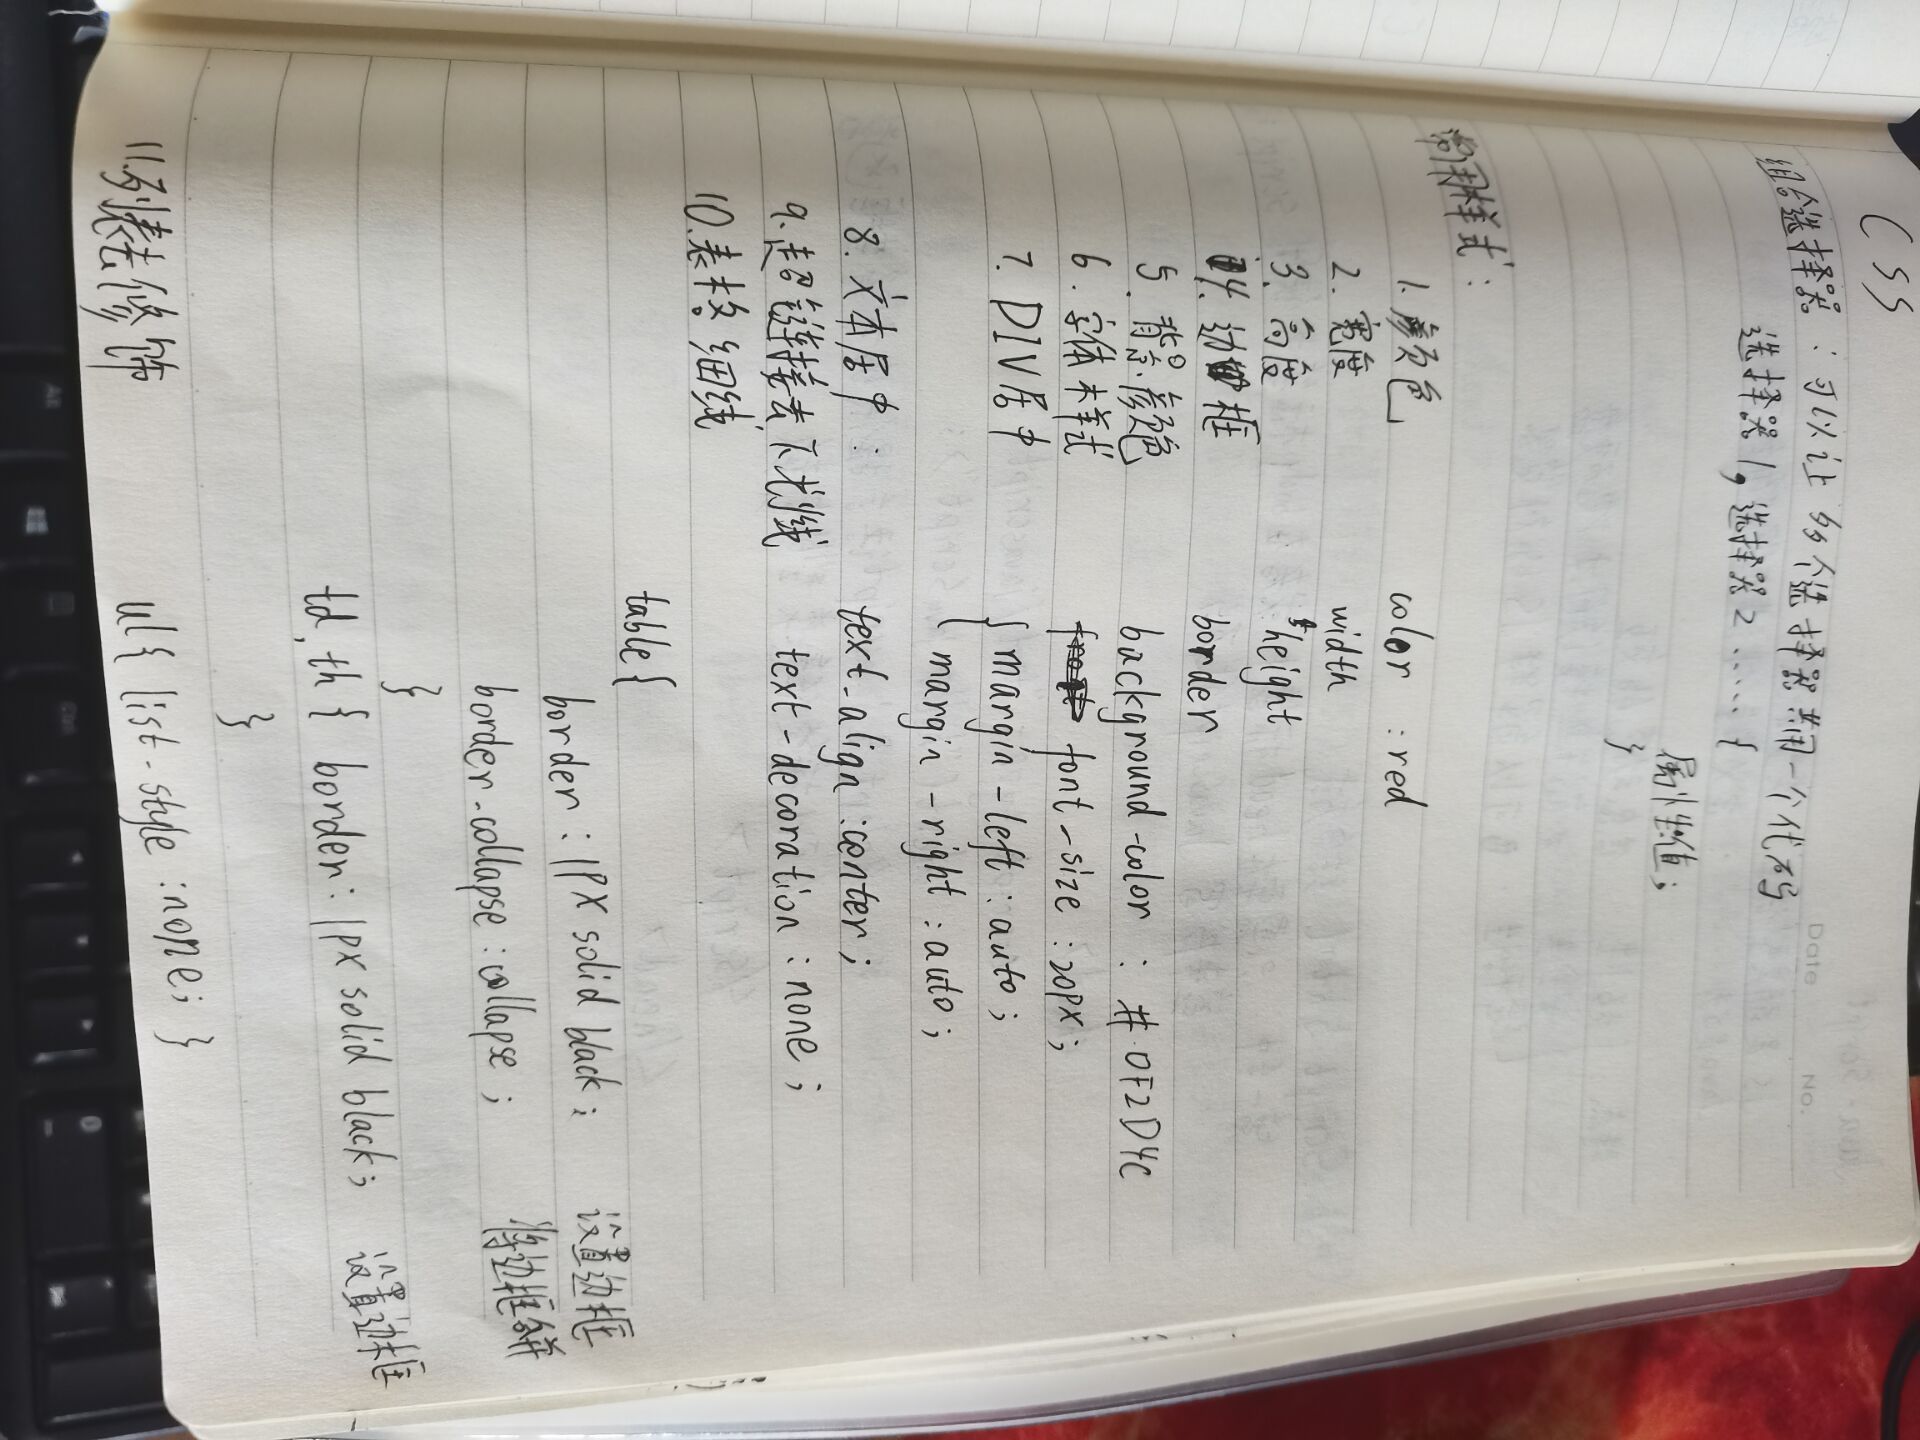 Date
No.
CSS
组合选择器：可以让多个选择器共用一个代码
选择器1，选择器2 ..... {
属性:值;
}
常用样式：
1. 颜色 color : red
2. 宽度 width
3. 高度 height
4. 边框 border
5. 背景颜色 background-color : #0F2D4C
6. 字体样式 font-size : 20px;
7. DIV居中 { margin-left : auto;
{ margin-right : auto;
8. 文本居中 : text-align : conter;
9. 超链接去下划线 text-decoration : none;
10. 表格细线
table {
border : 1px solid black; 设置边框
border-collapse : collapse; 将边框合并
}
td, th { border : 1px solid black; 设置边框
}
11. 列表去修饰 ul { list-style : none; }